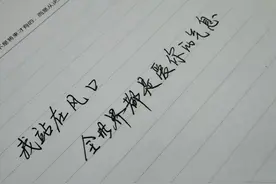 我站在风口
全世界都是爱你的气息